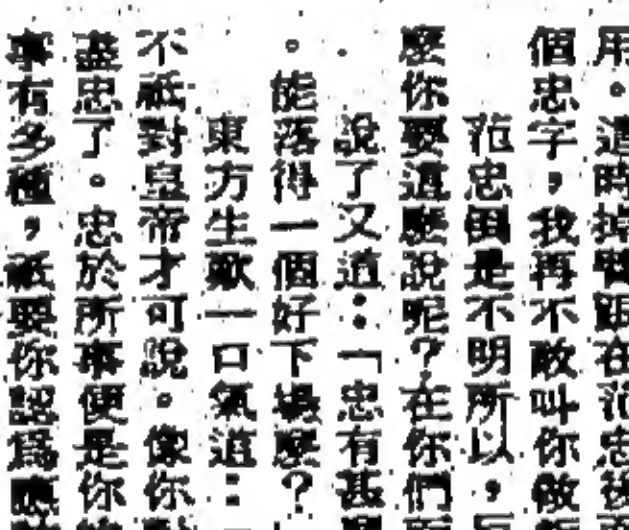 用。這時
個忠字,我再不敢叫你做
范忠俱是不明所以,
麼你要這麼說呢?在你們
說了又道:「忠有甚
。能落得一個好下場麼?
東方生歎一口氣道:
不祇對皇帝才可說。像你
盡忠了。忠於所事便是你
事有多種,祇要你認為